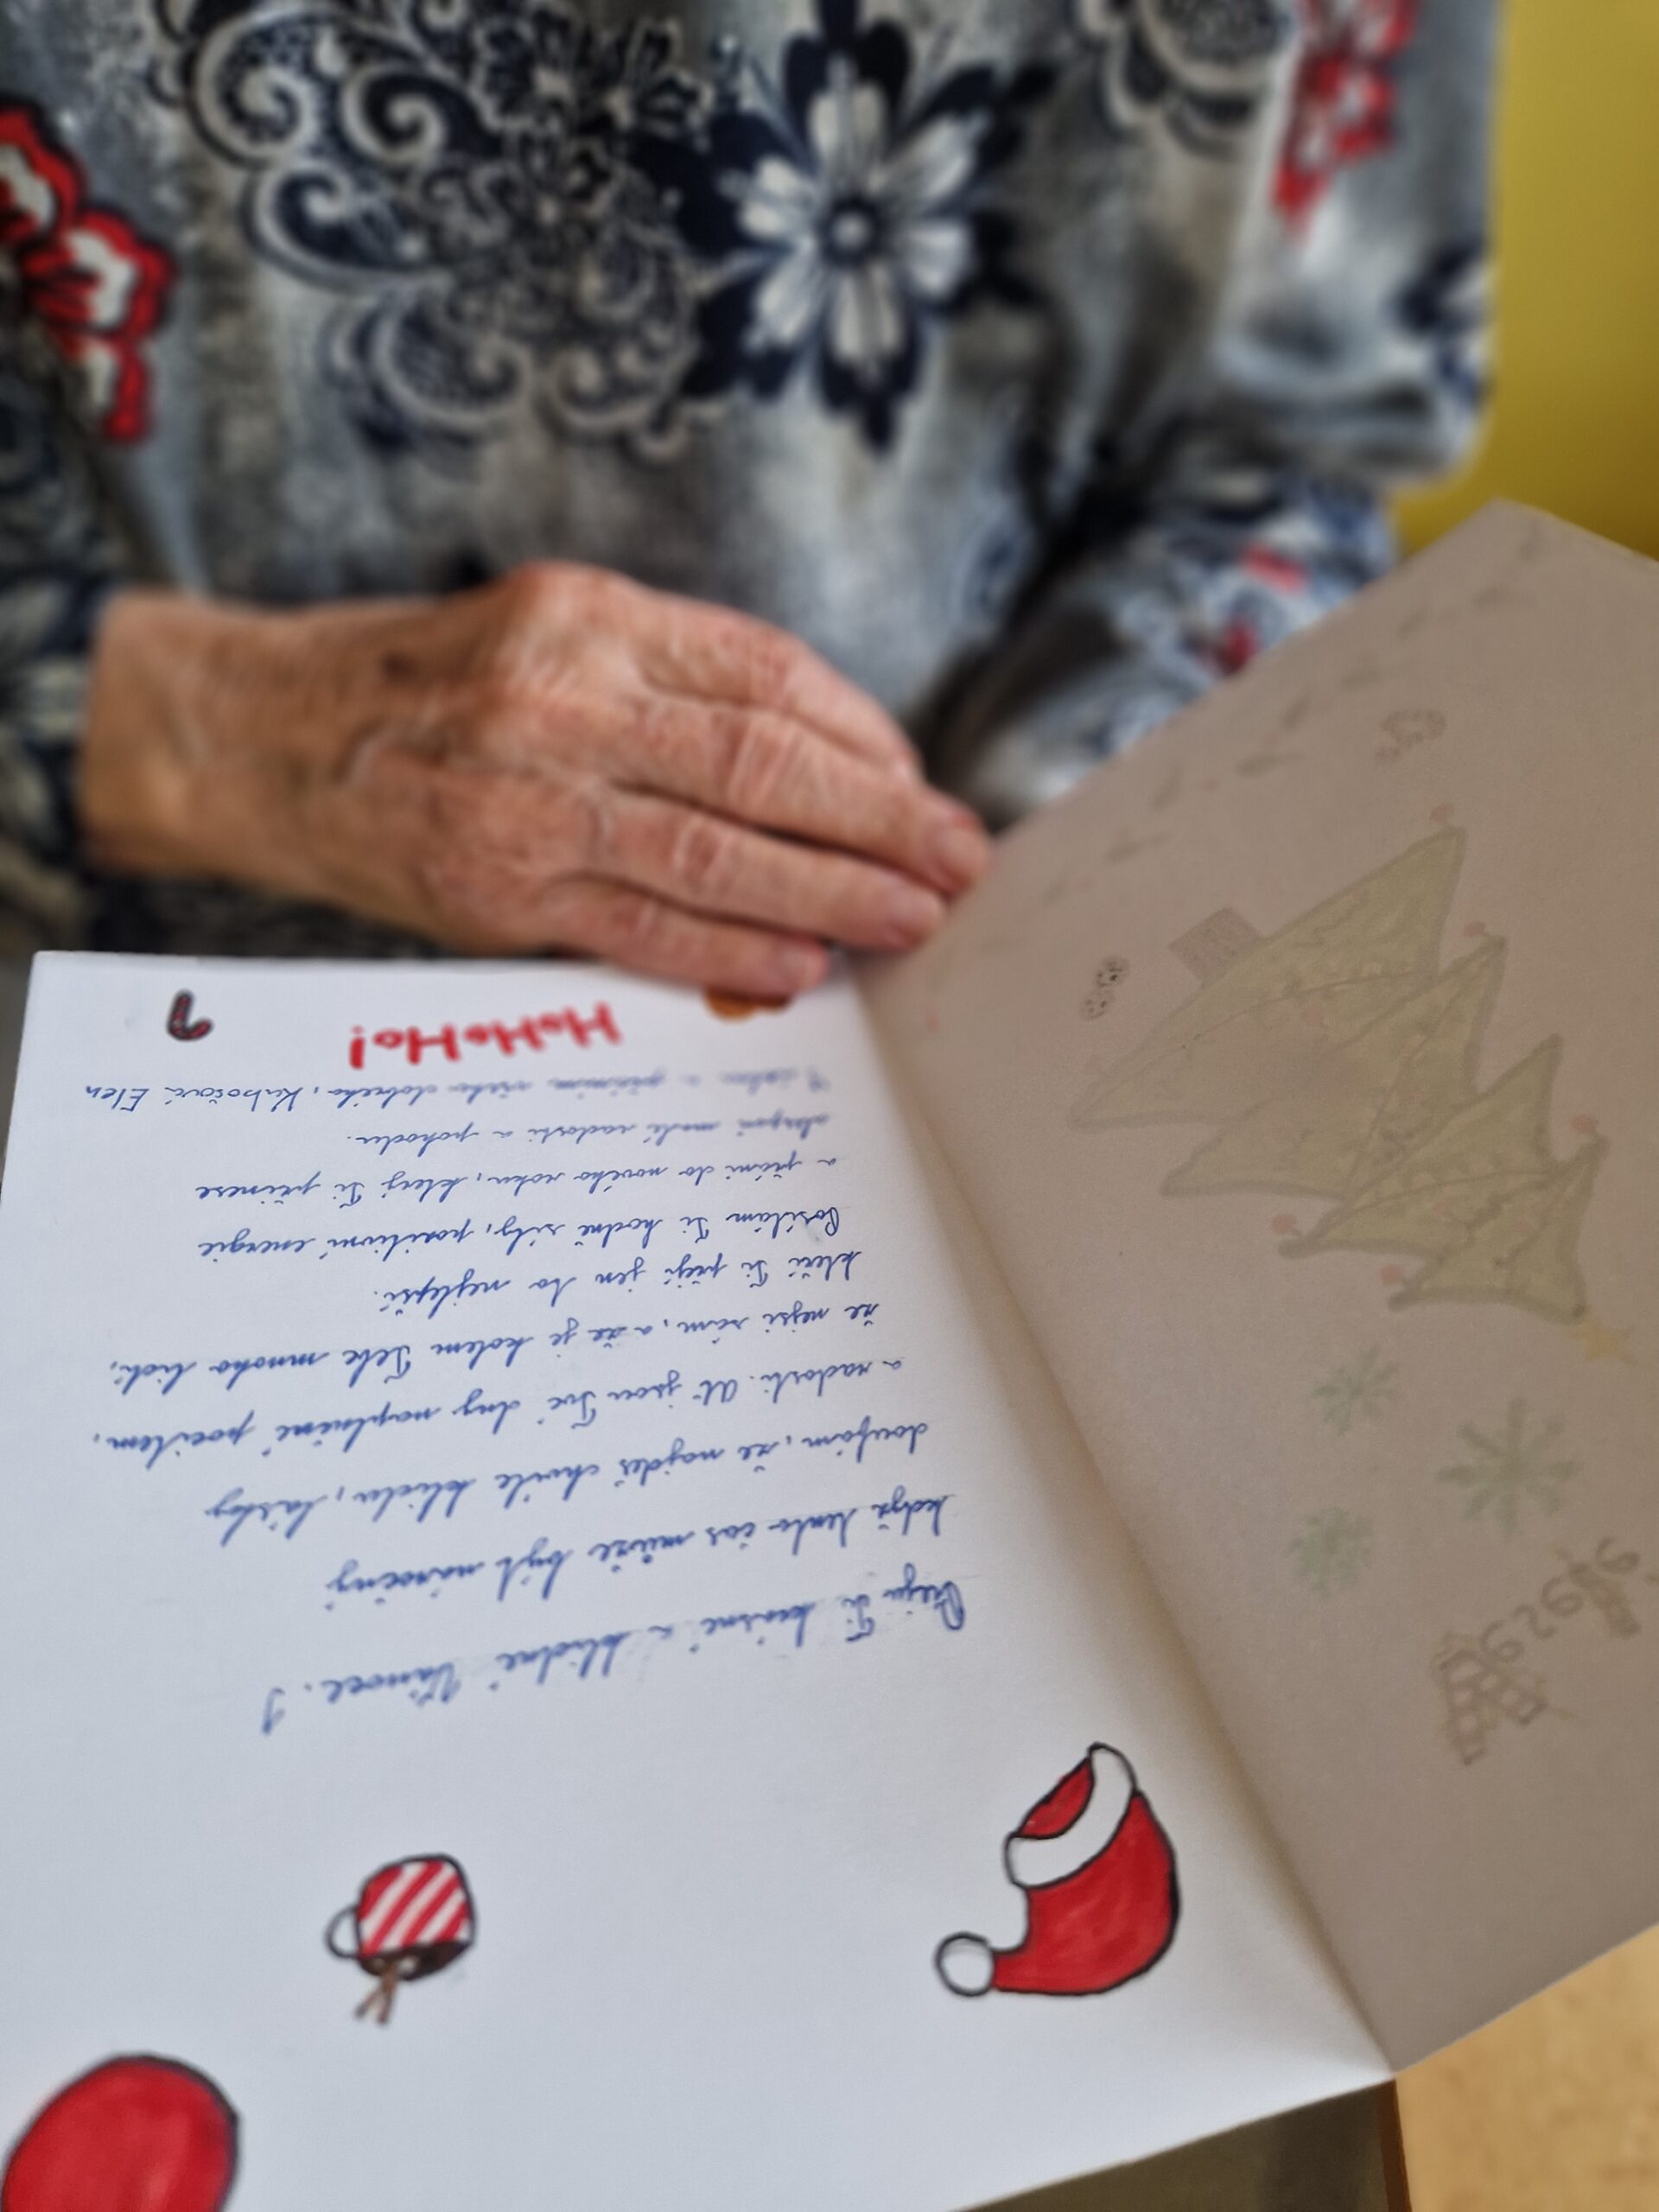 Přeju Ti krásné a klidné Vánoce. I
když tento čas může být náročný
doufám, že najdeš chvíle klidu, lásky
a radosti. Ať jsou Tvé dny naplněné pocitem,
že nejsi sám, a že je kolem Tebe mnoho lidí,
kteří Ti přejí jen to nejlepší.
Posílám Ti hodně síly, pozitivní energie
a přání do nového roku, který Ti přinese
alespoň malé radosti a pohodu.
S láskou a přáním všeho dobrého, Elen
HoHoHo!
Veselé